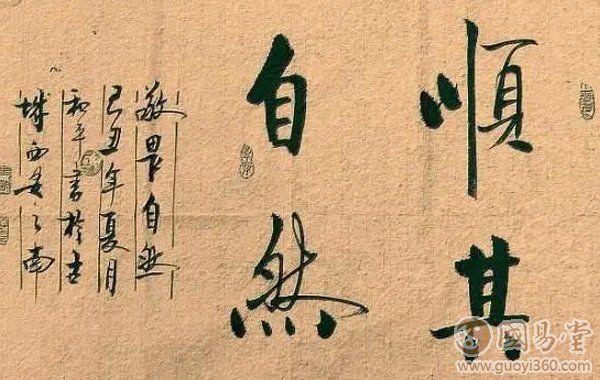 順其
自然
敬畏自然
己丑年夏月
和平書於古
城西安之南
國易堂
www.guoyi360.com